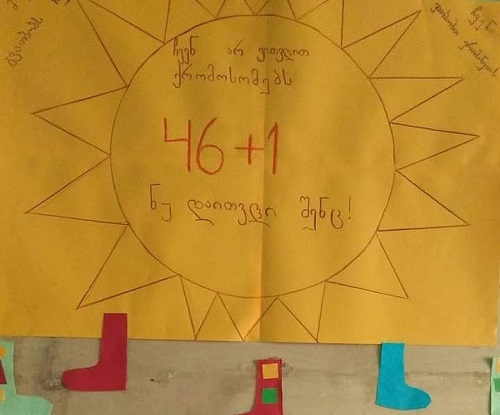 ჩვენ არ ვითვლით
ქრომოსომებს
46+1
ნუ დაითვლი შენც!
ჩვენ